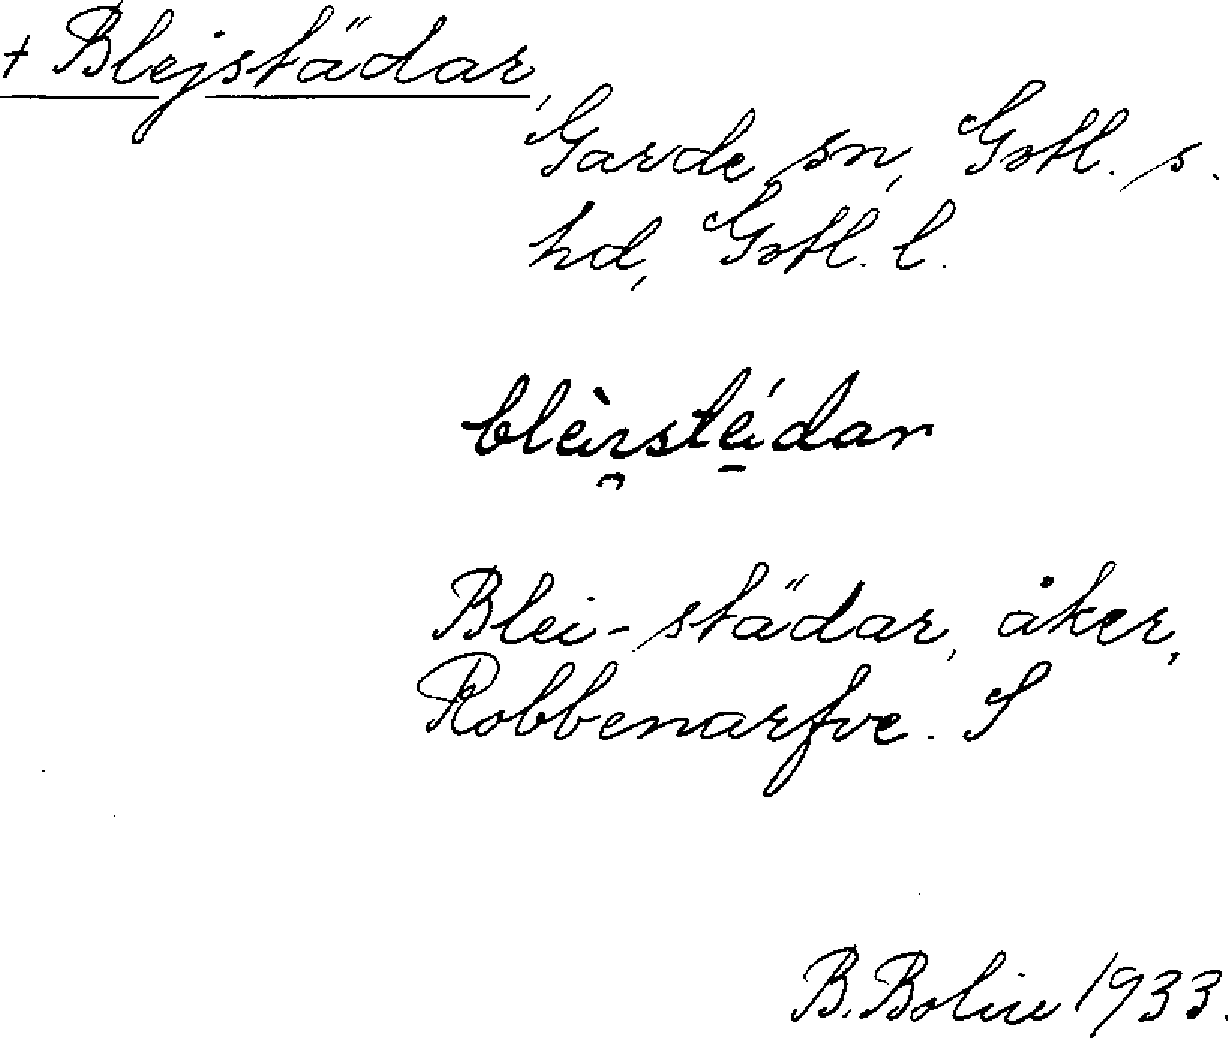 + Blejstädar,
Garde sn, Gotl. s.
hd, Gotl. l.
Blei-städar, åker,
Robbenarfve. S
B. Bolin 1933.